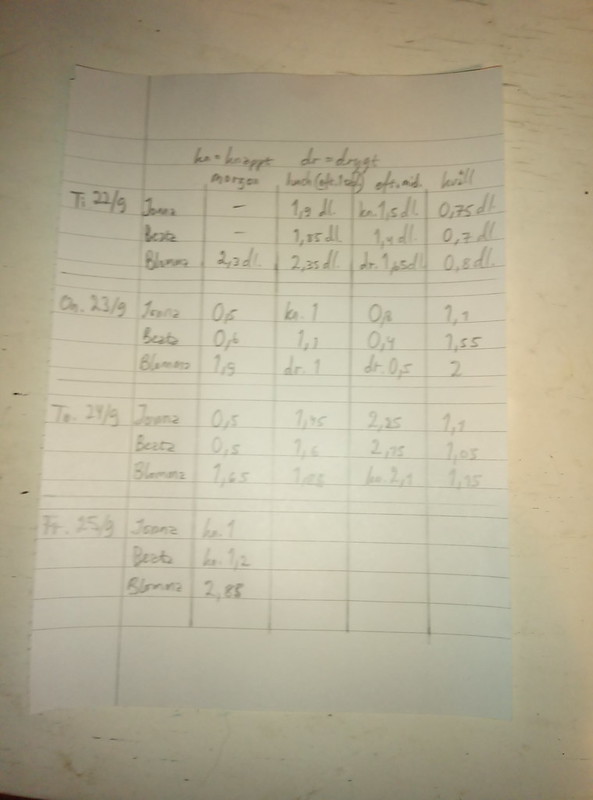 kn = knappt dr = drygt
morgon lunch (oft. 1 ) eft.mid. kväll
Ti. 22/9 Jonna – 1,9 dl. kn. 1,5 dl. 0,75 dl.
Beata – 1,85 dl. 1,4 dl. 0,7 dl.
Blomma 2,2 dl. 2,35 dl. dr. dl. 0,8 dl.
On. 23/9 Jonna 0,5 kn. 1 0,8 1,1
Beata 0,6 1,1 0,4 1,55
Blomma 1,9 dr. 1 dr. 0,5 2
To. 24/9 Jonna 0,5 1,45 2,25 1,1
Beata 0,5 1,5 2,15 1,05
Blomma 1,65 kn. 2,1 1,15
Fr. 25/9 Jonna kn. 1
Beata kn. 1,2
Blomma 2,85